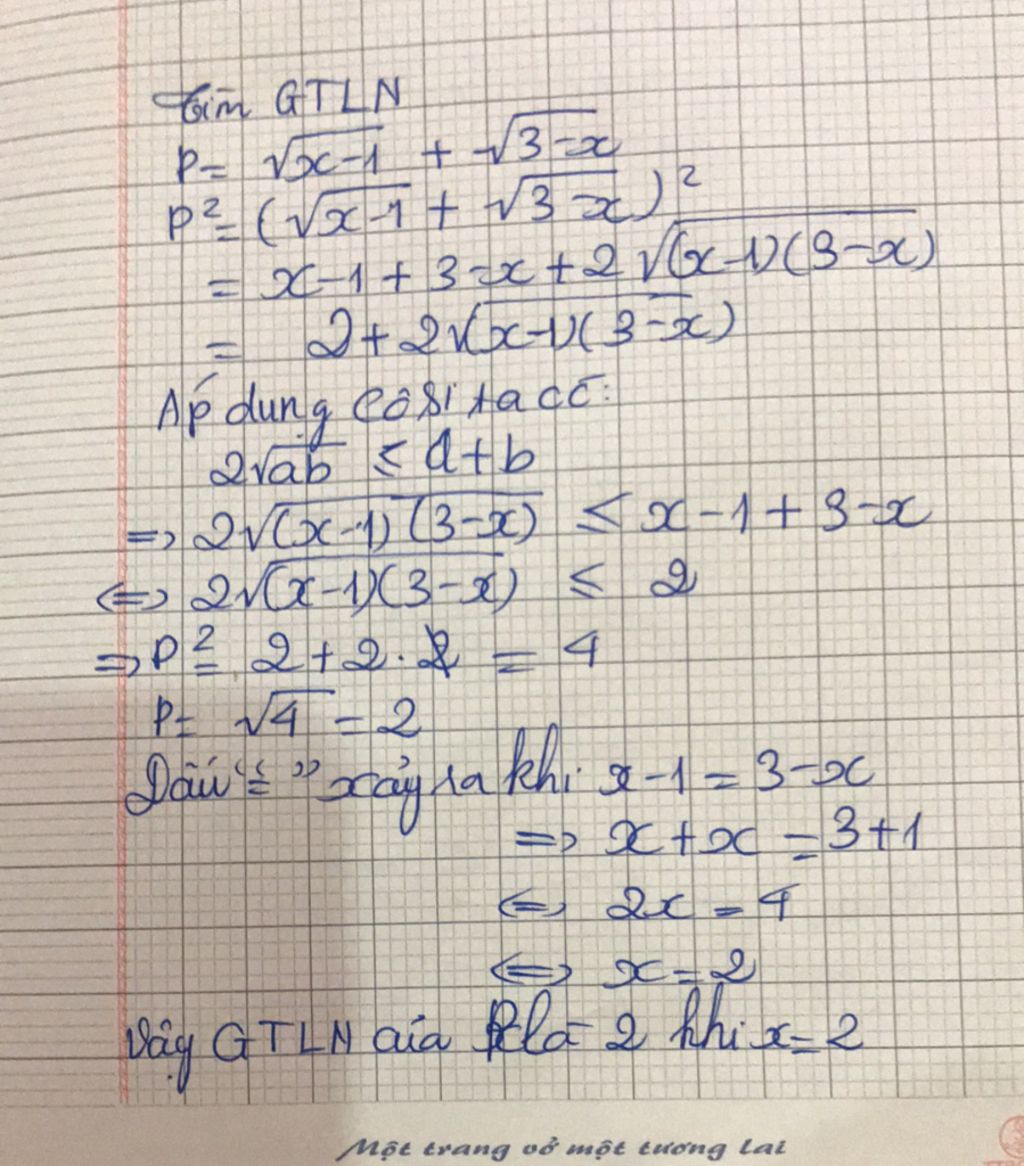 Tìm GTLN
P = √(x-1) + √(3-x)
P² = (√(x-1) + √(3-x))²
= x-1+3-x+2√((x-1)(3-x))
= 2+2√((x-1)(3-x))
Áp dụng côsi ta có:
2√(ab) ≤ a+b
=> 2√((x-1)(3-x)) ≤ x-1+3-x
<=> 2√((x-1)(3-x)) ≤ 2
=> P² = 2+2. = 4
P = √4 = 2
Dấu "=" xảy ra khi x-1 = 3-x
=> x+x = 3+1
<=> 2x = 4
<=> x = 2
Vậy GTLN của P là 2 khi x = 2
Một trang vở một tương lai